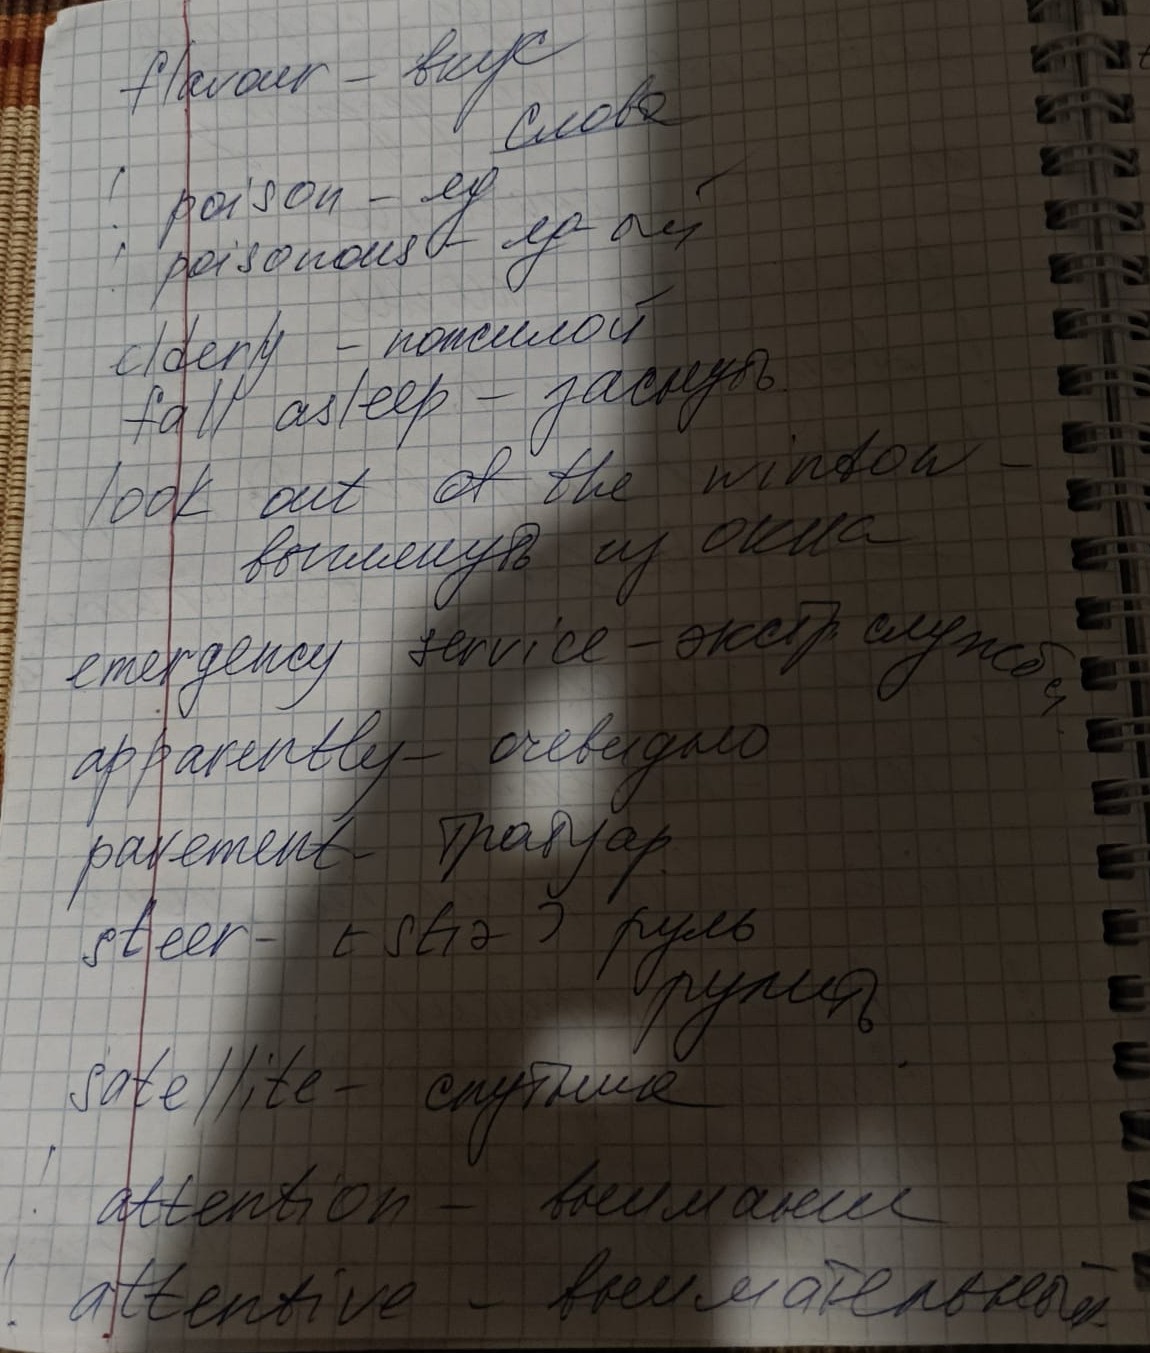 flavour - вкус
слова
! poison - яд
! poisonous - яд-ый
elderly - пожилой
fall asleep - заснуть
look out of the wintow -
выглянуть из окна
emergency service - экстр. службы
apparently - очевидно
pavement - тротуар
steer - [stiə] руль
рулить
satellite - спутник
! attention - внимание
! attentive - внимательный